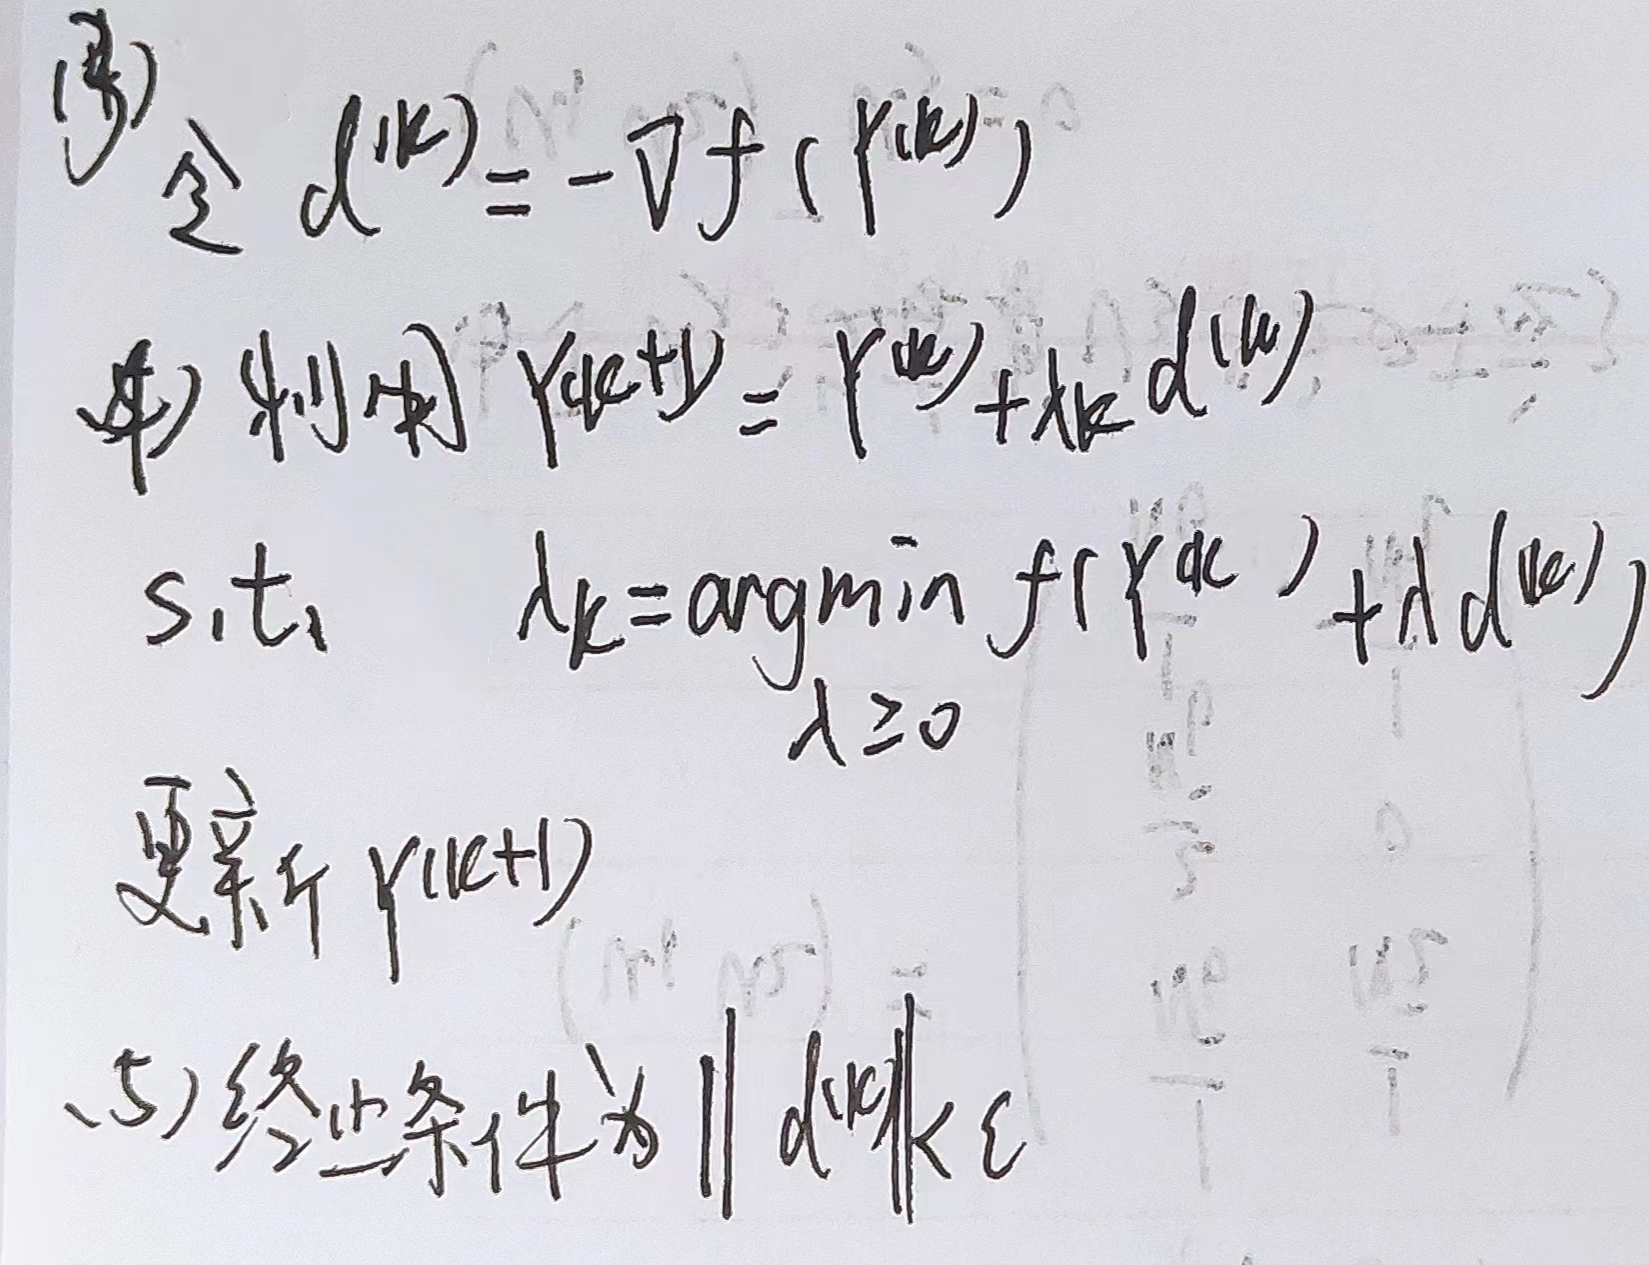 (3) 令 d^{(k)} = -∇f(Y^{(k)})
(4) 利用 Y^{(k+1)} = Y^{(k)} + λ_k d^{(k)}
s.t. λ_k = argmin f(Y^{(k)} + λ d^{(k)})
λ ≥ 0
更新 Y^{(k+1)}
(5) 终止条件为 ‖d^{(k)}‖ < ε